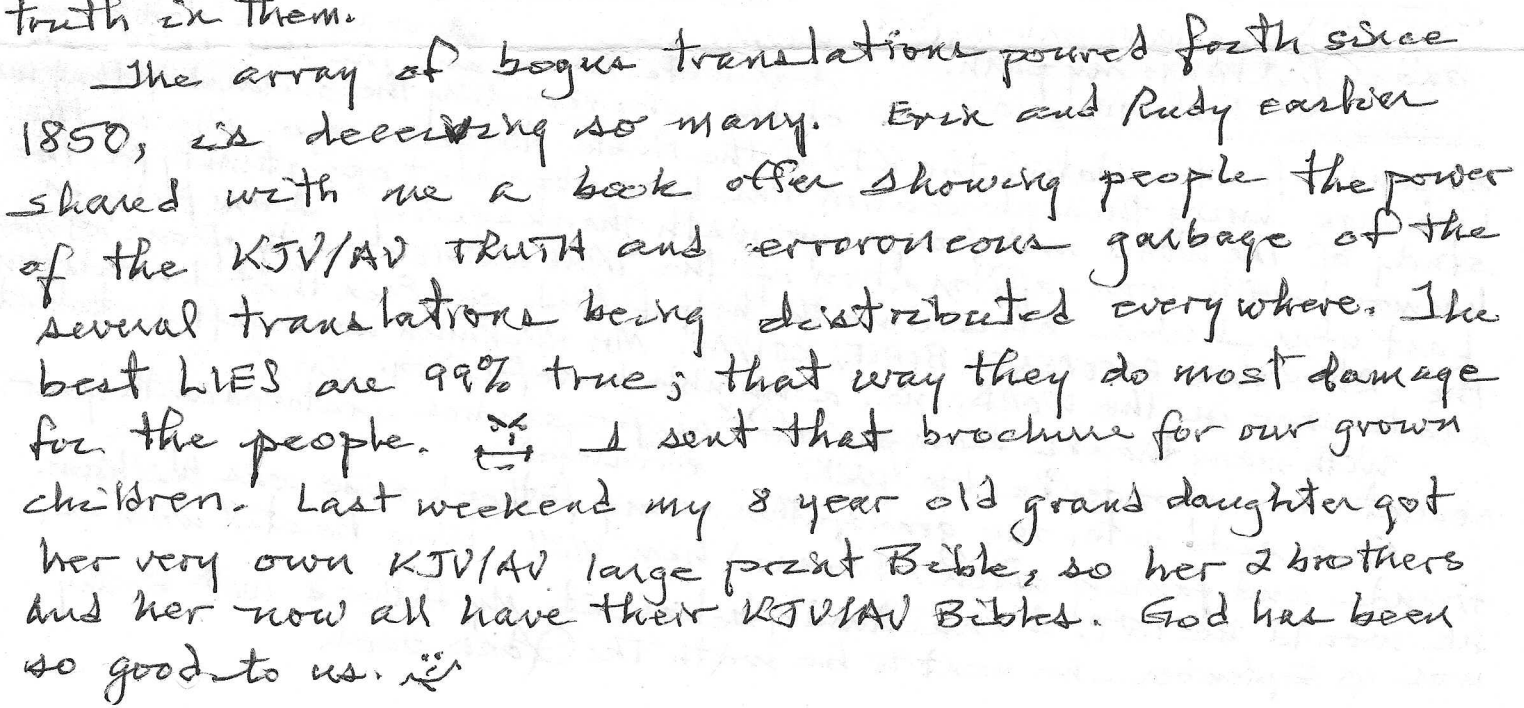 truth in them.
The array of bogus translations poured forth since
1850, is deceiving so many. Erik and Rudy earlier
shared with me a book offer showing people the power
of the KJV/AV TRUTH and erroroneous garbage of the
several translations being distributed everywhere. The
best LIES are 99% true; that way they do most damage
for the people. I sent that brochure for our grown
children. Last weekend my 8 year old grand daughter got
her very own KJV/AV large print Bible, so her 2 brothers
and her now all have their KJV/AV Bibles. God has been
so good to us.